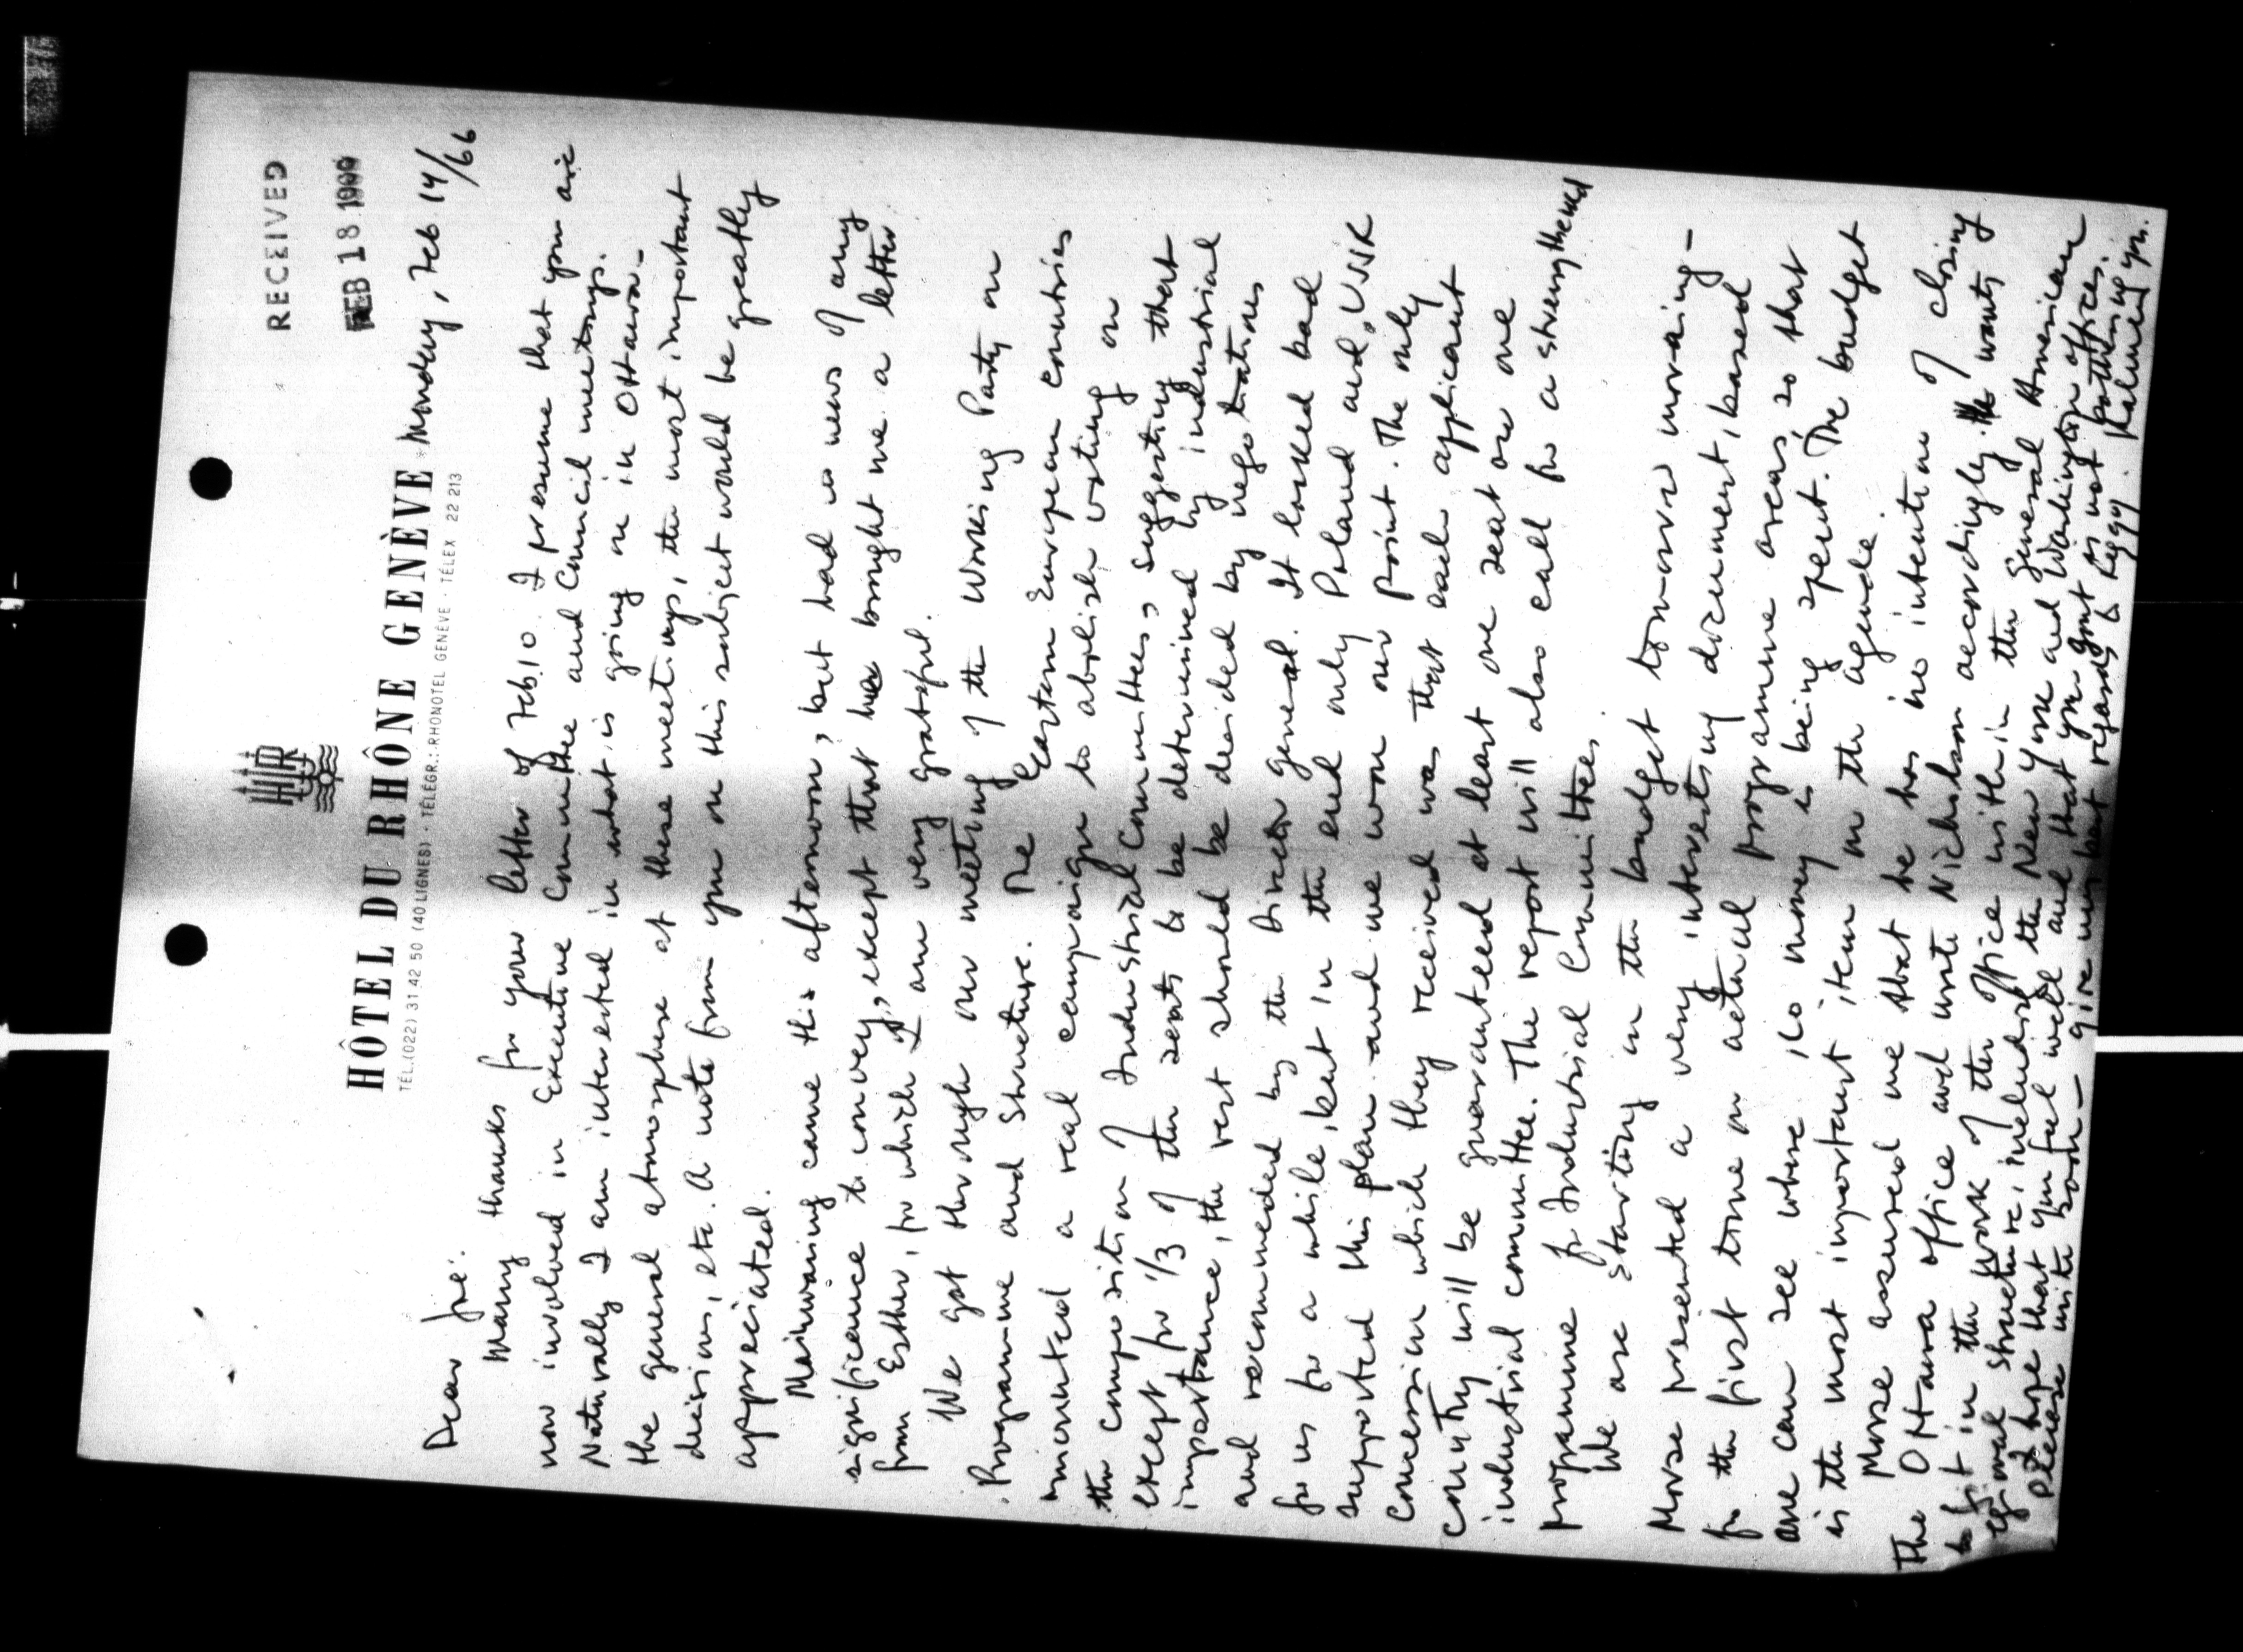 RECEIVED
FEB 18 1966
HR
HÔTEL DU RHÔNE GENÈVE
TÉL.(022) 31 42 50 (40 LIGNES) · TÉLÉGR.: RHONOTEL GENÈVE · TÉLEX 22 213
Monday, Feb 14/66
Dear Joe:
Many thanks for your letter of Feb. 10. I presume that you are
now involved in Executive Committee and Council meetings.
Naturally I am interested in what is going on in Ottawa –
the general atmosphere at these meetings, the most important
decisions, etc. A note from you on this subject would be greatly
appreciated.
Mainwaring came this afternoon, but had no news of any
significance to convey, except that he brought me a letter
from Esther, for which I am very grateful.
We got through our meeting of the Working Party on
Programme and Structure. The Eastern European countries
mounted a real campaign to abolish voting on
the composition of Industrial Committees, suggesting that
except for 1/3 of the seats to be determined by industrial
importance, the rest should be decided by negotiations
and recommended by the Director General. It looked bad
for us for a while, but in the end only Poland and USSR
supported this plan and we won our point. The only
concession which they received was that each applicant
country will be guaranteed at least one seat on one
industrial committee. The report will also call for a strengthened
programme for Industrial Committees.
We are starting on the budget tomorrow morning –
Morse presented a very interesting document, based
for the first time on actual programme areas, so that
one can see where ILO money is being spent. The budget
is the most important item on the agenda.
Morse assured me that he has no intention of closing
the Ottawa office and wrote Nicholson accordingly. He wants
to fit in the work of the office within the general American
regional structure, including the New York and Washington offices.
I hope that you feel well and that your gout is not bothering you.
Please write soon – give my best regards to Peggy. Kalmen